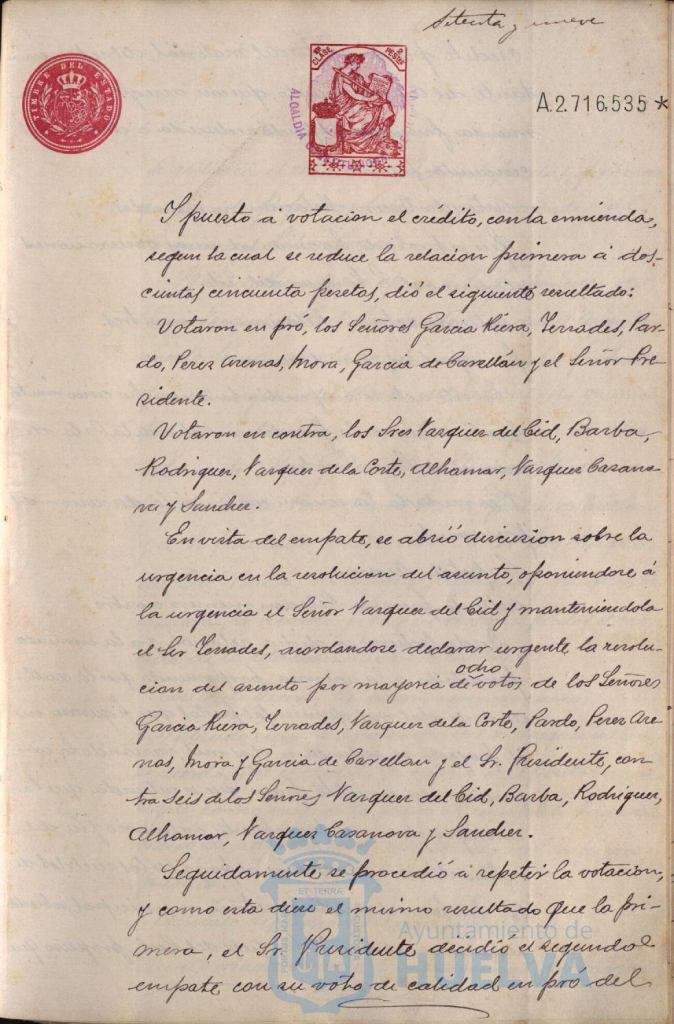 Setenta y nueve
TIMBRE DEL ESTADO
CLASE
PESETAS
ALCALDIA
A.2.716,535*
Y puesto á votacion el crédito, con la enmienda,
segun la cual se reduce la relacion primera á dos-
cientas cincuenta pesetas, dió el siguiente resultado:
Votaron en pró, los Señores Garcia Riera, Terrades, Par-
do, Perez Arenas, Mora, Garcia de Cavellán y el Señor Pre
sidente.
Votaron en contra, los Sres Vazquez del Cid, Barba,
Rodriguez, Vazquez de la Corte, Alhamar, Vazquez Casano
va y Sanchez.
En vista del empate, se abrió discusion sobre la
urgencia en la resolucion del asunto, oponiendose á
la urgencia el Señor Vazquez del Cid y manteniendola
el Sr Terrades, acordandose declarar urgente la resolu-
cion del asunto por mayoria de ocho votos de los Señores
Garcia Riera, Terrades, Vazquez de la Corte, Pardo, Perez Are
nas, Mora y Garcia de Cavellan y el Sr. Presidente, con
tra seis de los Señores Vazquez del Cid, Barba, Rodriguez,
Alhamar, Vazquez Casanova y Sanchez.
Seguidamente se procedió á repetir la votacion,
y como esta diese el mismo resultado que la pri-
mera, el Sr. Presidente decidió el segundo
empate con su voto de calidad en pró del
Ayuntamiento de
HUELVA